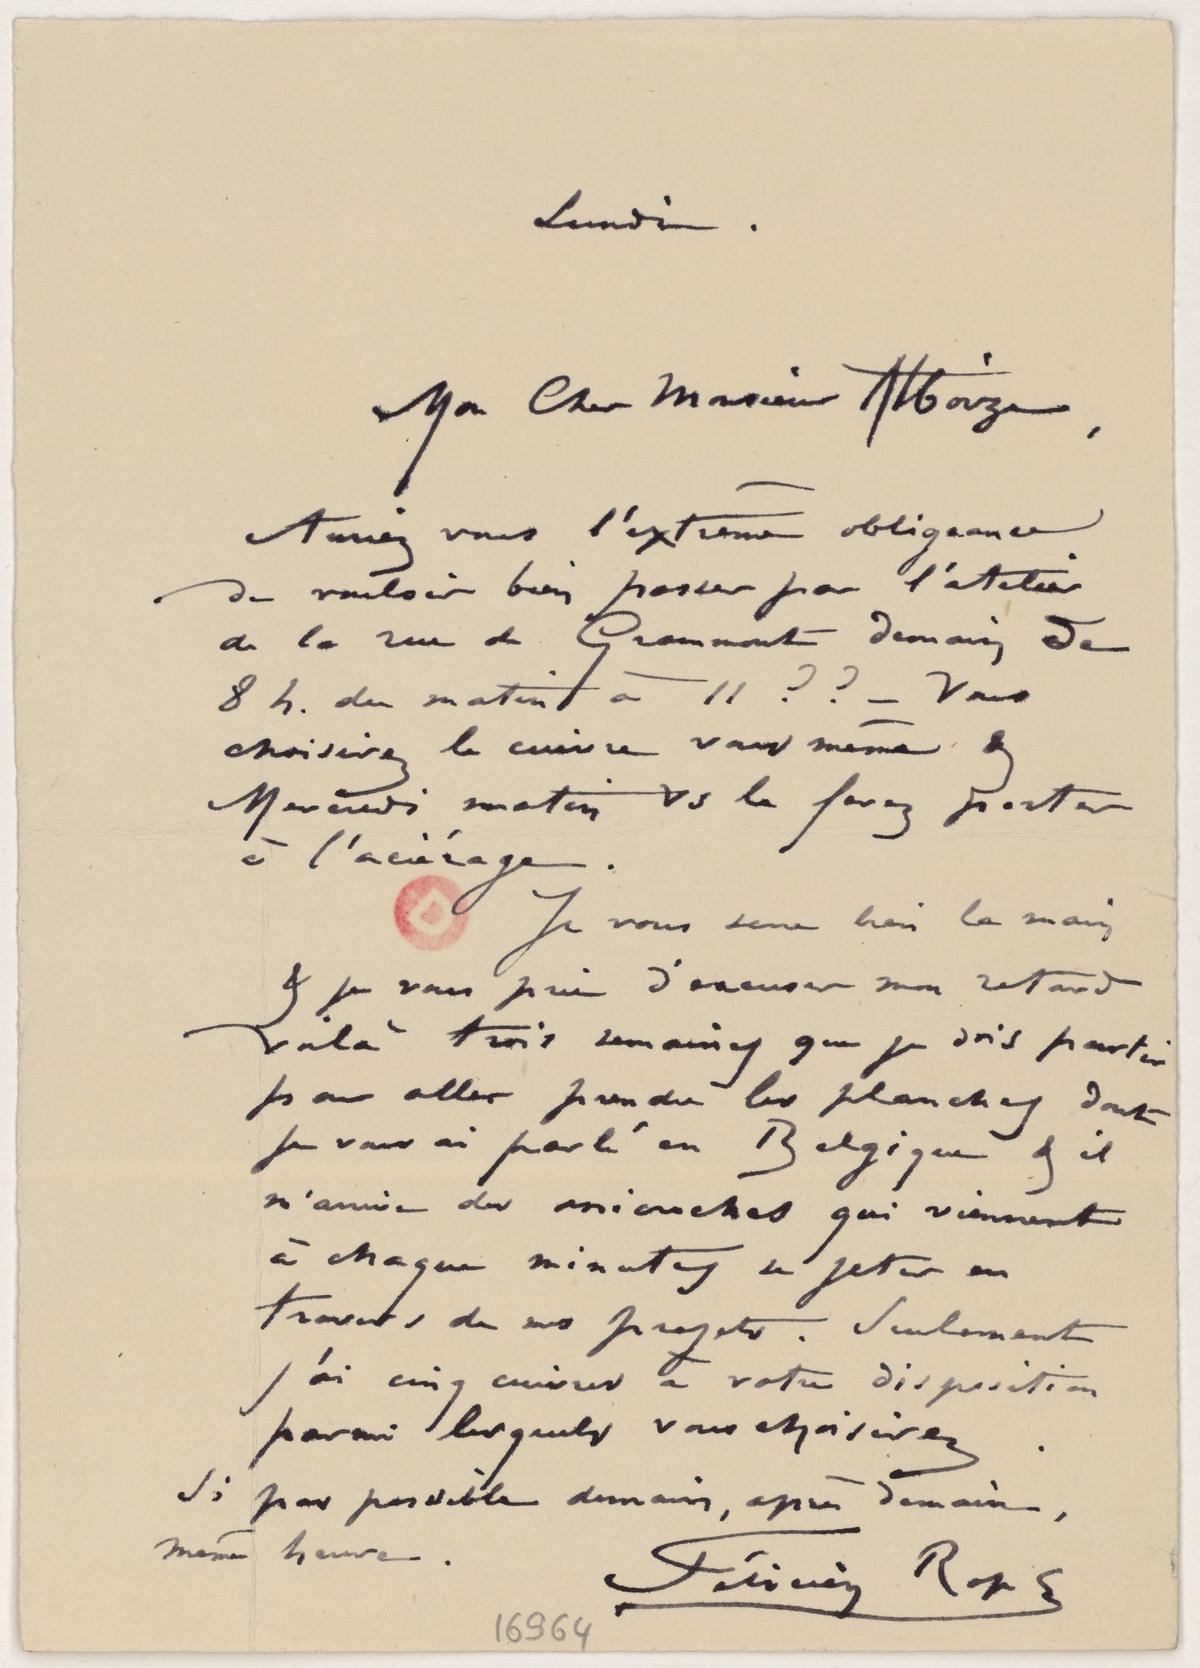 Lundi.
Mon Cher Monsieur
Auriez vous l'extrême obligeance
de vouloir bien passer par l'atelier
de la rue de Grammont demain de
8 h. du matin à 11 ?? – Vous
choisirez le cuivre vous même &
Mercredi matin vs le ferez porter
à l'aciérage.
Je vous serre bien la main
& je vous prie d'excuser mon retard
voilà trois semaines que je dois partir
pour aller prendre les planches dont
je vous ai parlé en Belgique & il
m'arrive des anicroches qui viennent
à chaque minutes se jeter en
travers de mes projets. Seulement
j'ai cinq cuivres à votre disposition
parmi lesquels vous choisirez.
Si pas possible demain, après demain,
même heure.
Félicien Rops
16964